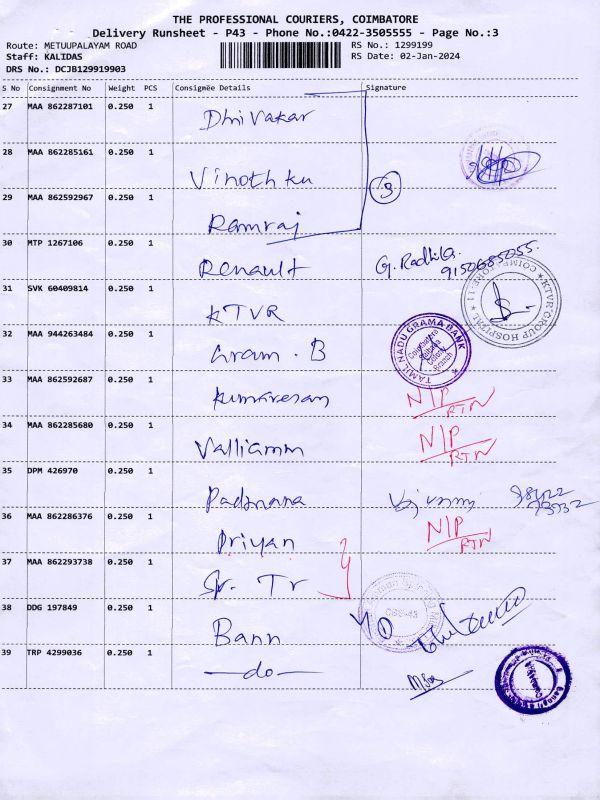 THE PROFESSIONAL COURIERS, COIMBATORE
Delivery Runsheet - P43 - Phone No.:0422-3505555 - Page No.:3
Route: METUUPALAYAM ROAD RS No.: 1299199
Staff: KALIDAS RS Date: 02-Jan-2024
DRS No.: DCJB129919903
S No Consignment No Weight PCS Consignee Details Signature
27 MAA 862287101 0.250 1 Dhivakar
28 MAA 862285161 0.250 1 Vinoth ku
3
29 MAA 862592967 0.250 1 Ramraj
30 MTP 1267106 0.250 1 Renault G. Radhika
31 SVK 60409814 0.250 1 KTVR
KTVR GROUP HOSPITAL
32 MAA 944263484 0.250 1 Gram . B
TAMIL NADU GRAMA BANK
Coimbatore
Colony
Branch
33 MAA 862592687 0.250 1 Kumaresan N/P
RTN
34 MAA 862285680 0.250 1 Valliamm N/P
RTN
35 DPM 426970 0.250 1 Padmana
36 MAA 862286376 0.250 1 Priyan N/P
RTN
37 MAA 862293738 0.250 1 Sr. Tr
38 DDG 197849 0.250 1 Bann
39 TRP 4299036 0.250 1 -do-